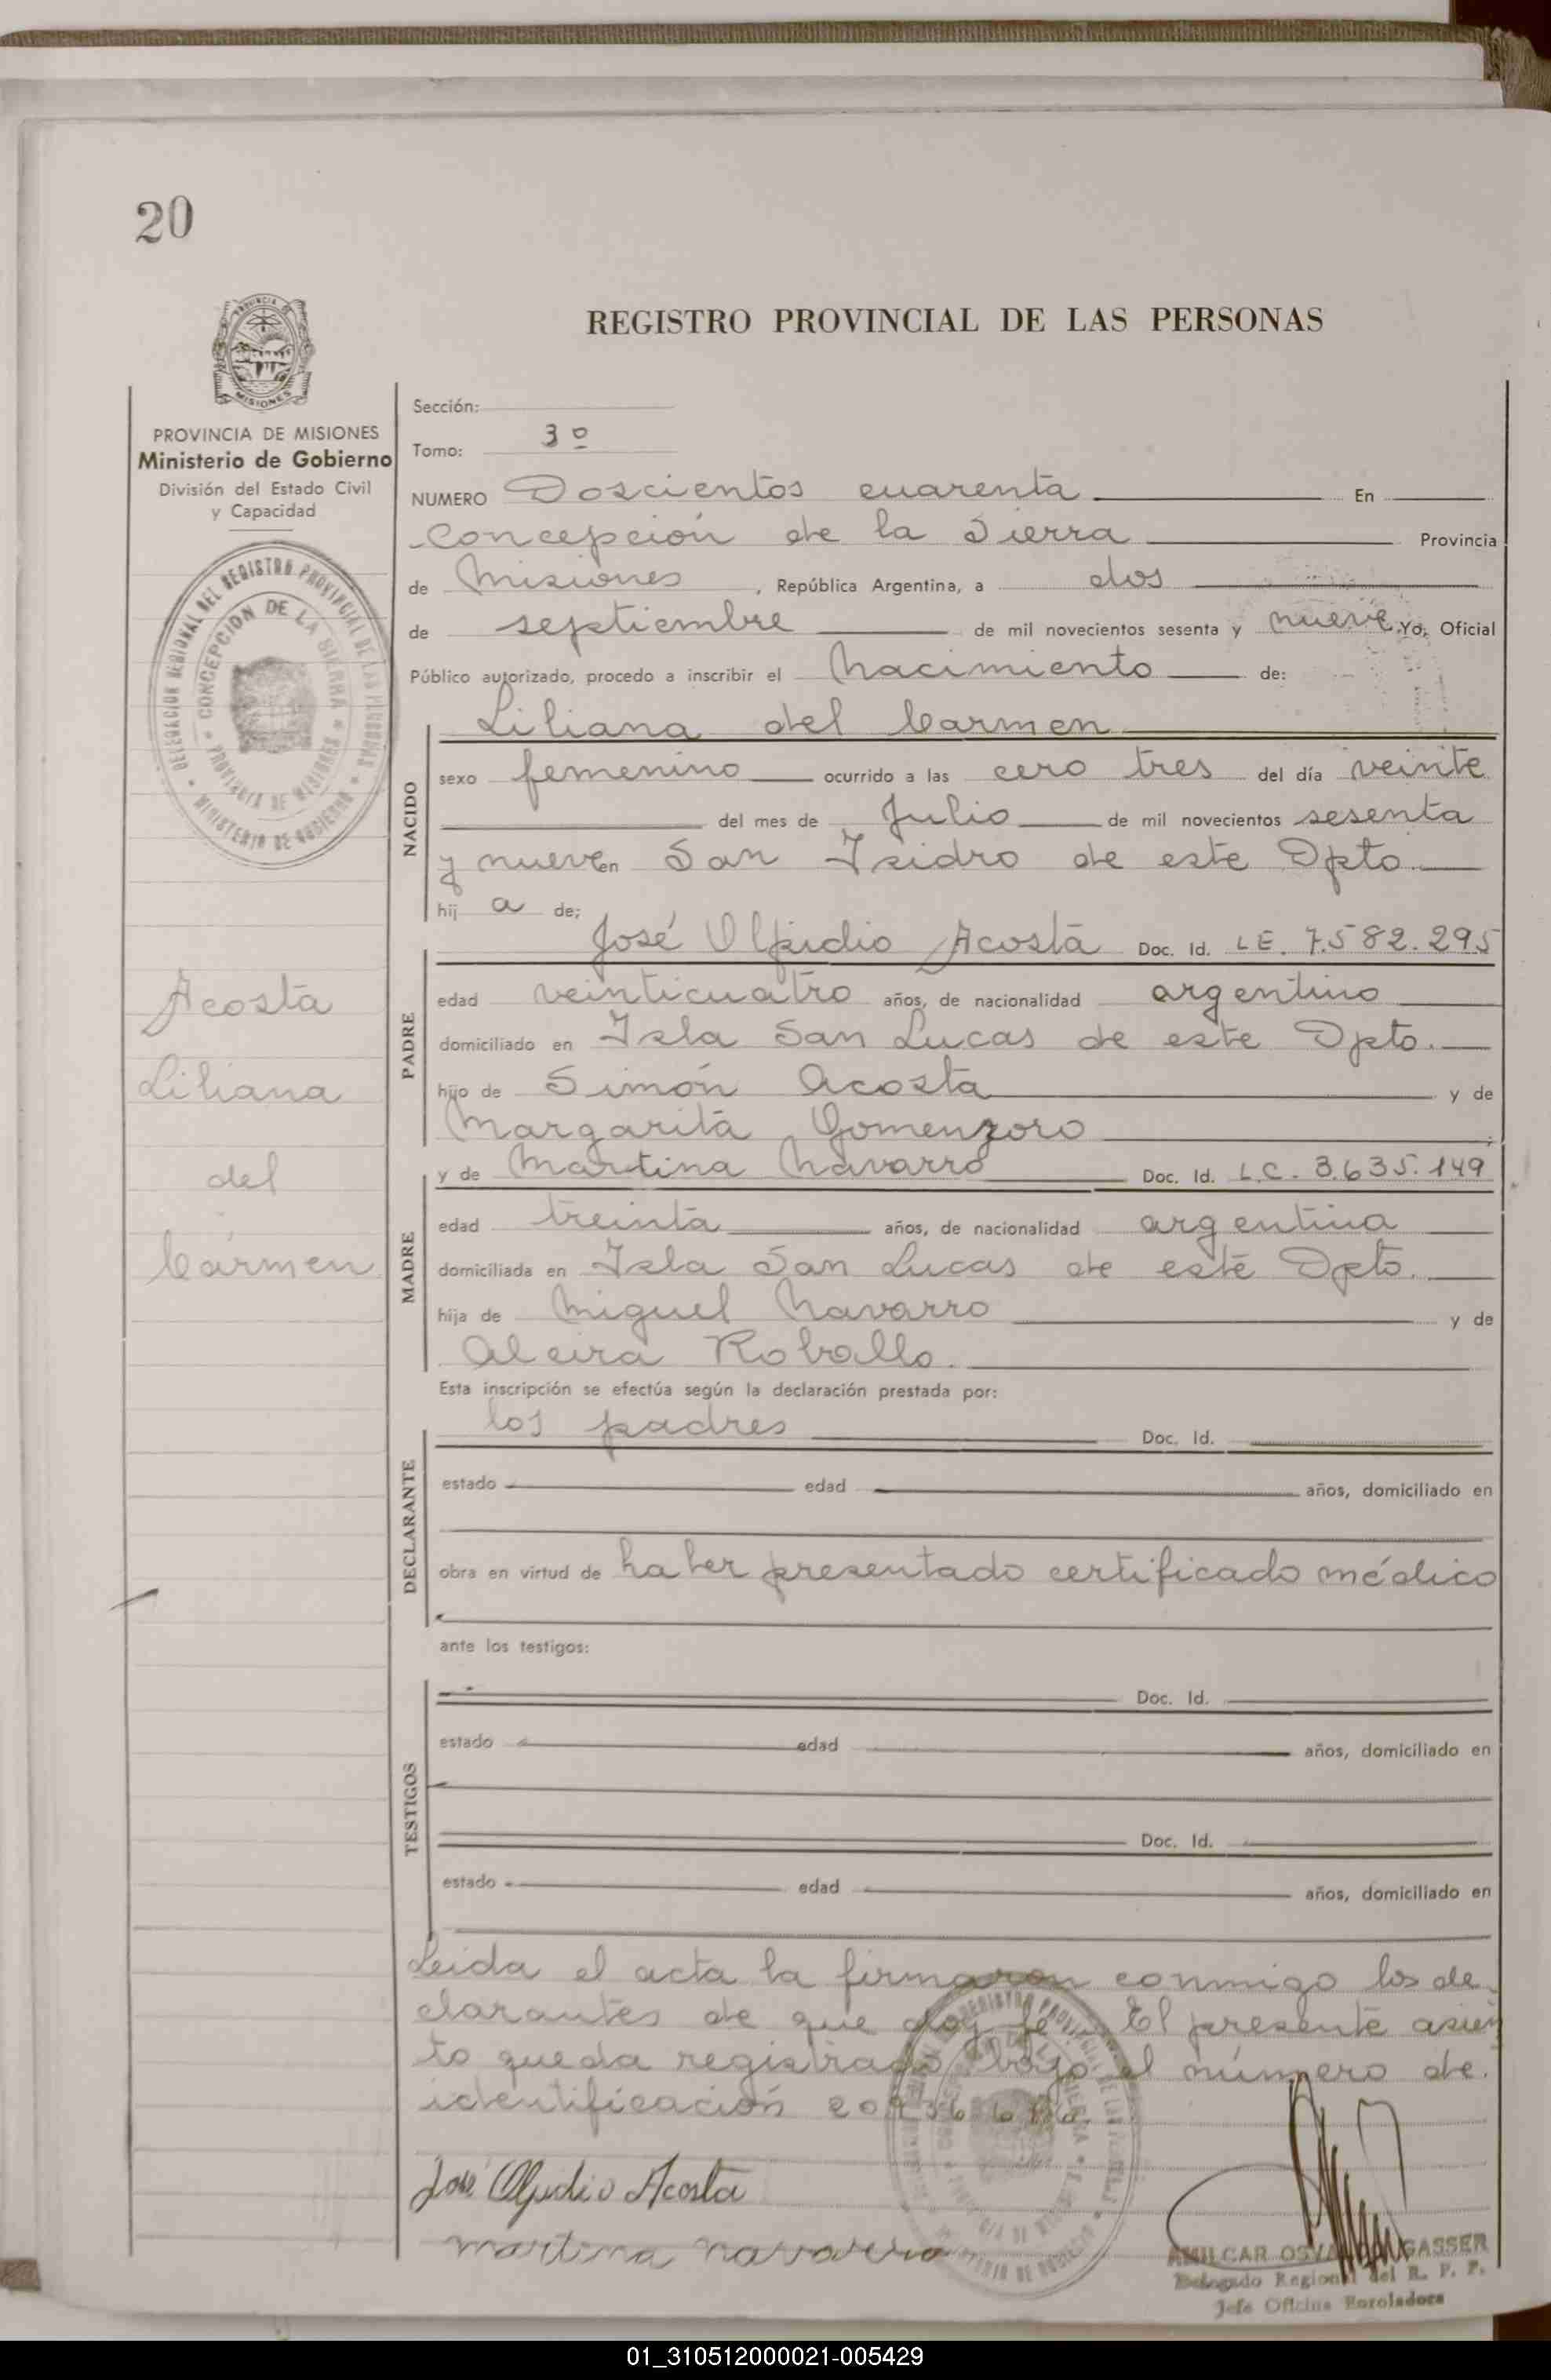 20
PROVINCIA
MISIONES
REGISTRO PROVINCIAL DE LAS PERSONAS
PROVINCIA DE MISIONES
Ministerio de Gobierno
División del Estado Civil
y Capacidad
DELEGACION REGIONAL DEL REGISTRO PROVINCIAL DE LAS PERSONAS
CONCEPCION DE LA SIERRA
PROVINCIA DE MISIONES
MINISTERIO DE GOBIERNO
Acosta
Liliana
del
Carmen
Sección:
Tomo: 3º
NUMERO Doscientos cuarenta En
Concepción de la Sierra Provincia
de Misiones, República Argentina, a dos
de septiembre de mil novecientos sesenta y nueve Yo, Oficial
Público autorizado, procedo a inscribir el Nacimiento de:
NACIDO
Liliana del Carmen
sexo femenino ocurrido a las cero tres del día veinte
del mes de Julio de mil novecientos sesenta
y nueve en San Isidro de este Dpto.
hij a de;
PADRE
José Olpidio Acosta Doc. Id. LE. 7.582.295
edad veinticuatro años, de nacionalidad argentino
domiciliado en Isla San Lucas de este Dpto.
hijo de Simón Acosta y de
Margarita Gomenzoro ;
MADRE
y de Martina Navarro Doc. Id. L.C. 3.635.149
edad treinta años, de nacionalidad argentina
domiciliada en Isla San Lucas de este Dpto.
hija de Miguel Navarro y de
Alcira Roballo.
Esta inscripción se efectúa según la declaración prestada por:
DECLARANTE
los padres Doc. Id.
estado edad años, domiciliado en
obra en virtud de haber presentado certificado médico
ante los testigos:
TESTIGOS
Doc. Id.
estado edad años, domiciliado en
Doc. Id.
estado edad años, domiciliado en
Leida el acta la firmaron conmigo los de-
clarantes de que doy fe. El presente asien
to queda registrado bajo el número de
identificación
José Olpidio Acosta
martina navarro
AMILCAR GASSER
Delegado Regional del R. P. P.
Jefe Oficina Enroladora
01_310512000021-005429